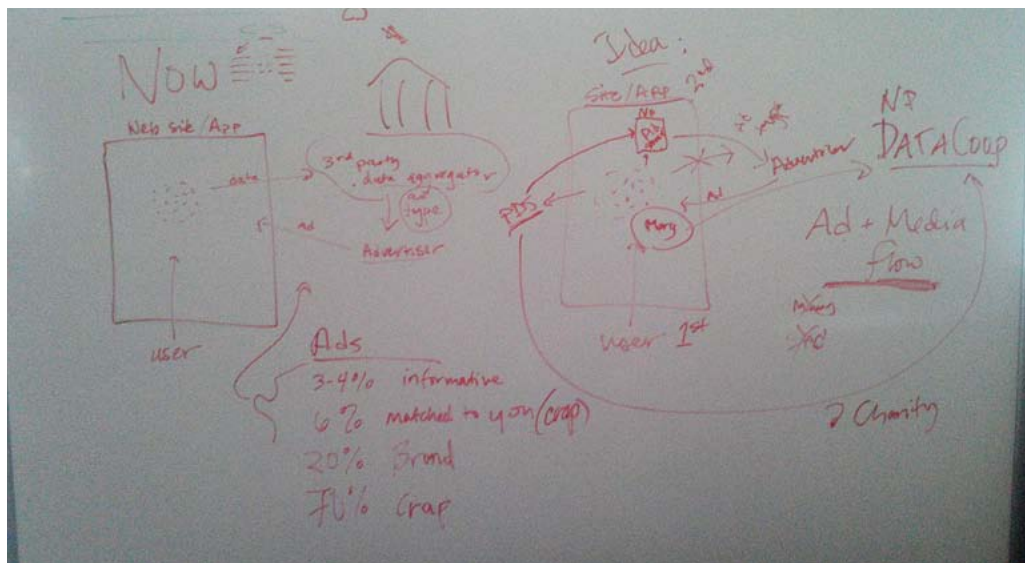 Now
Web site/App
data
3rd
party
data aggregator
ad
type
Ad
Advertiser
user
Ads
3-4% informative
6% matched to you (crap)
20% Brand
70% Crap
Idea:
Site/App
2nd
No
PDS
Mary
Ad
Advertiser
user 1st
NP
DATA Coop
Ad + Media
flow
Ad
Charity